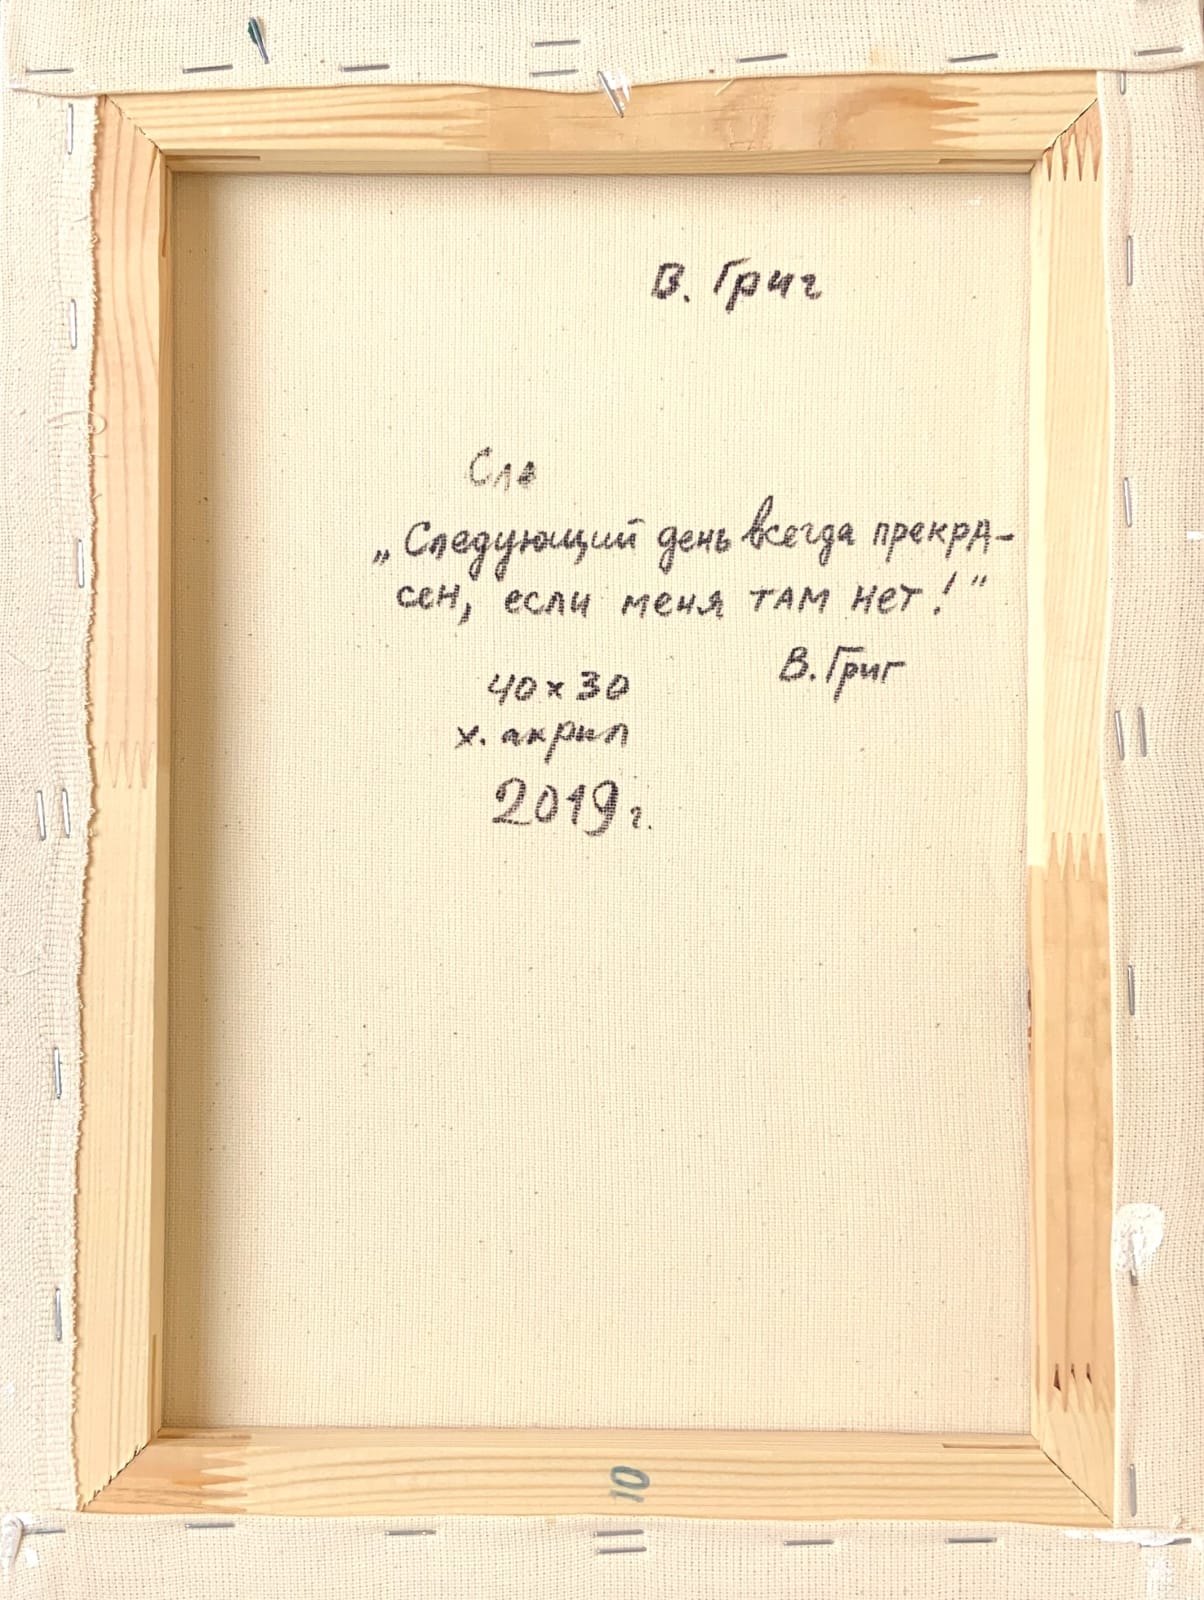 В. Григ
Сле
„Следующий день всегда прекра-
сен, если меня там нет!"
В. Григ
40 х 30
х. акрил
2019 г.
10